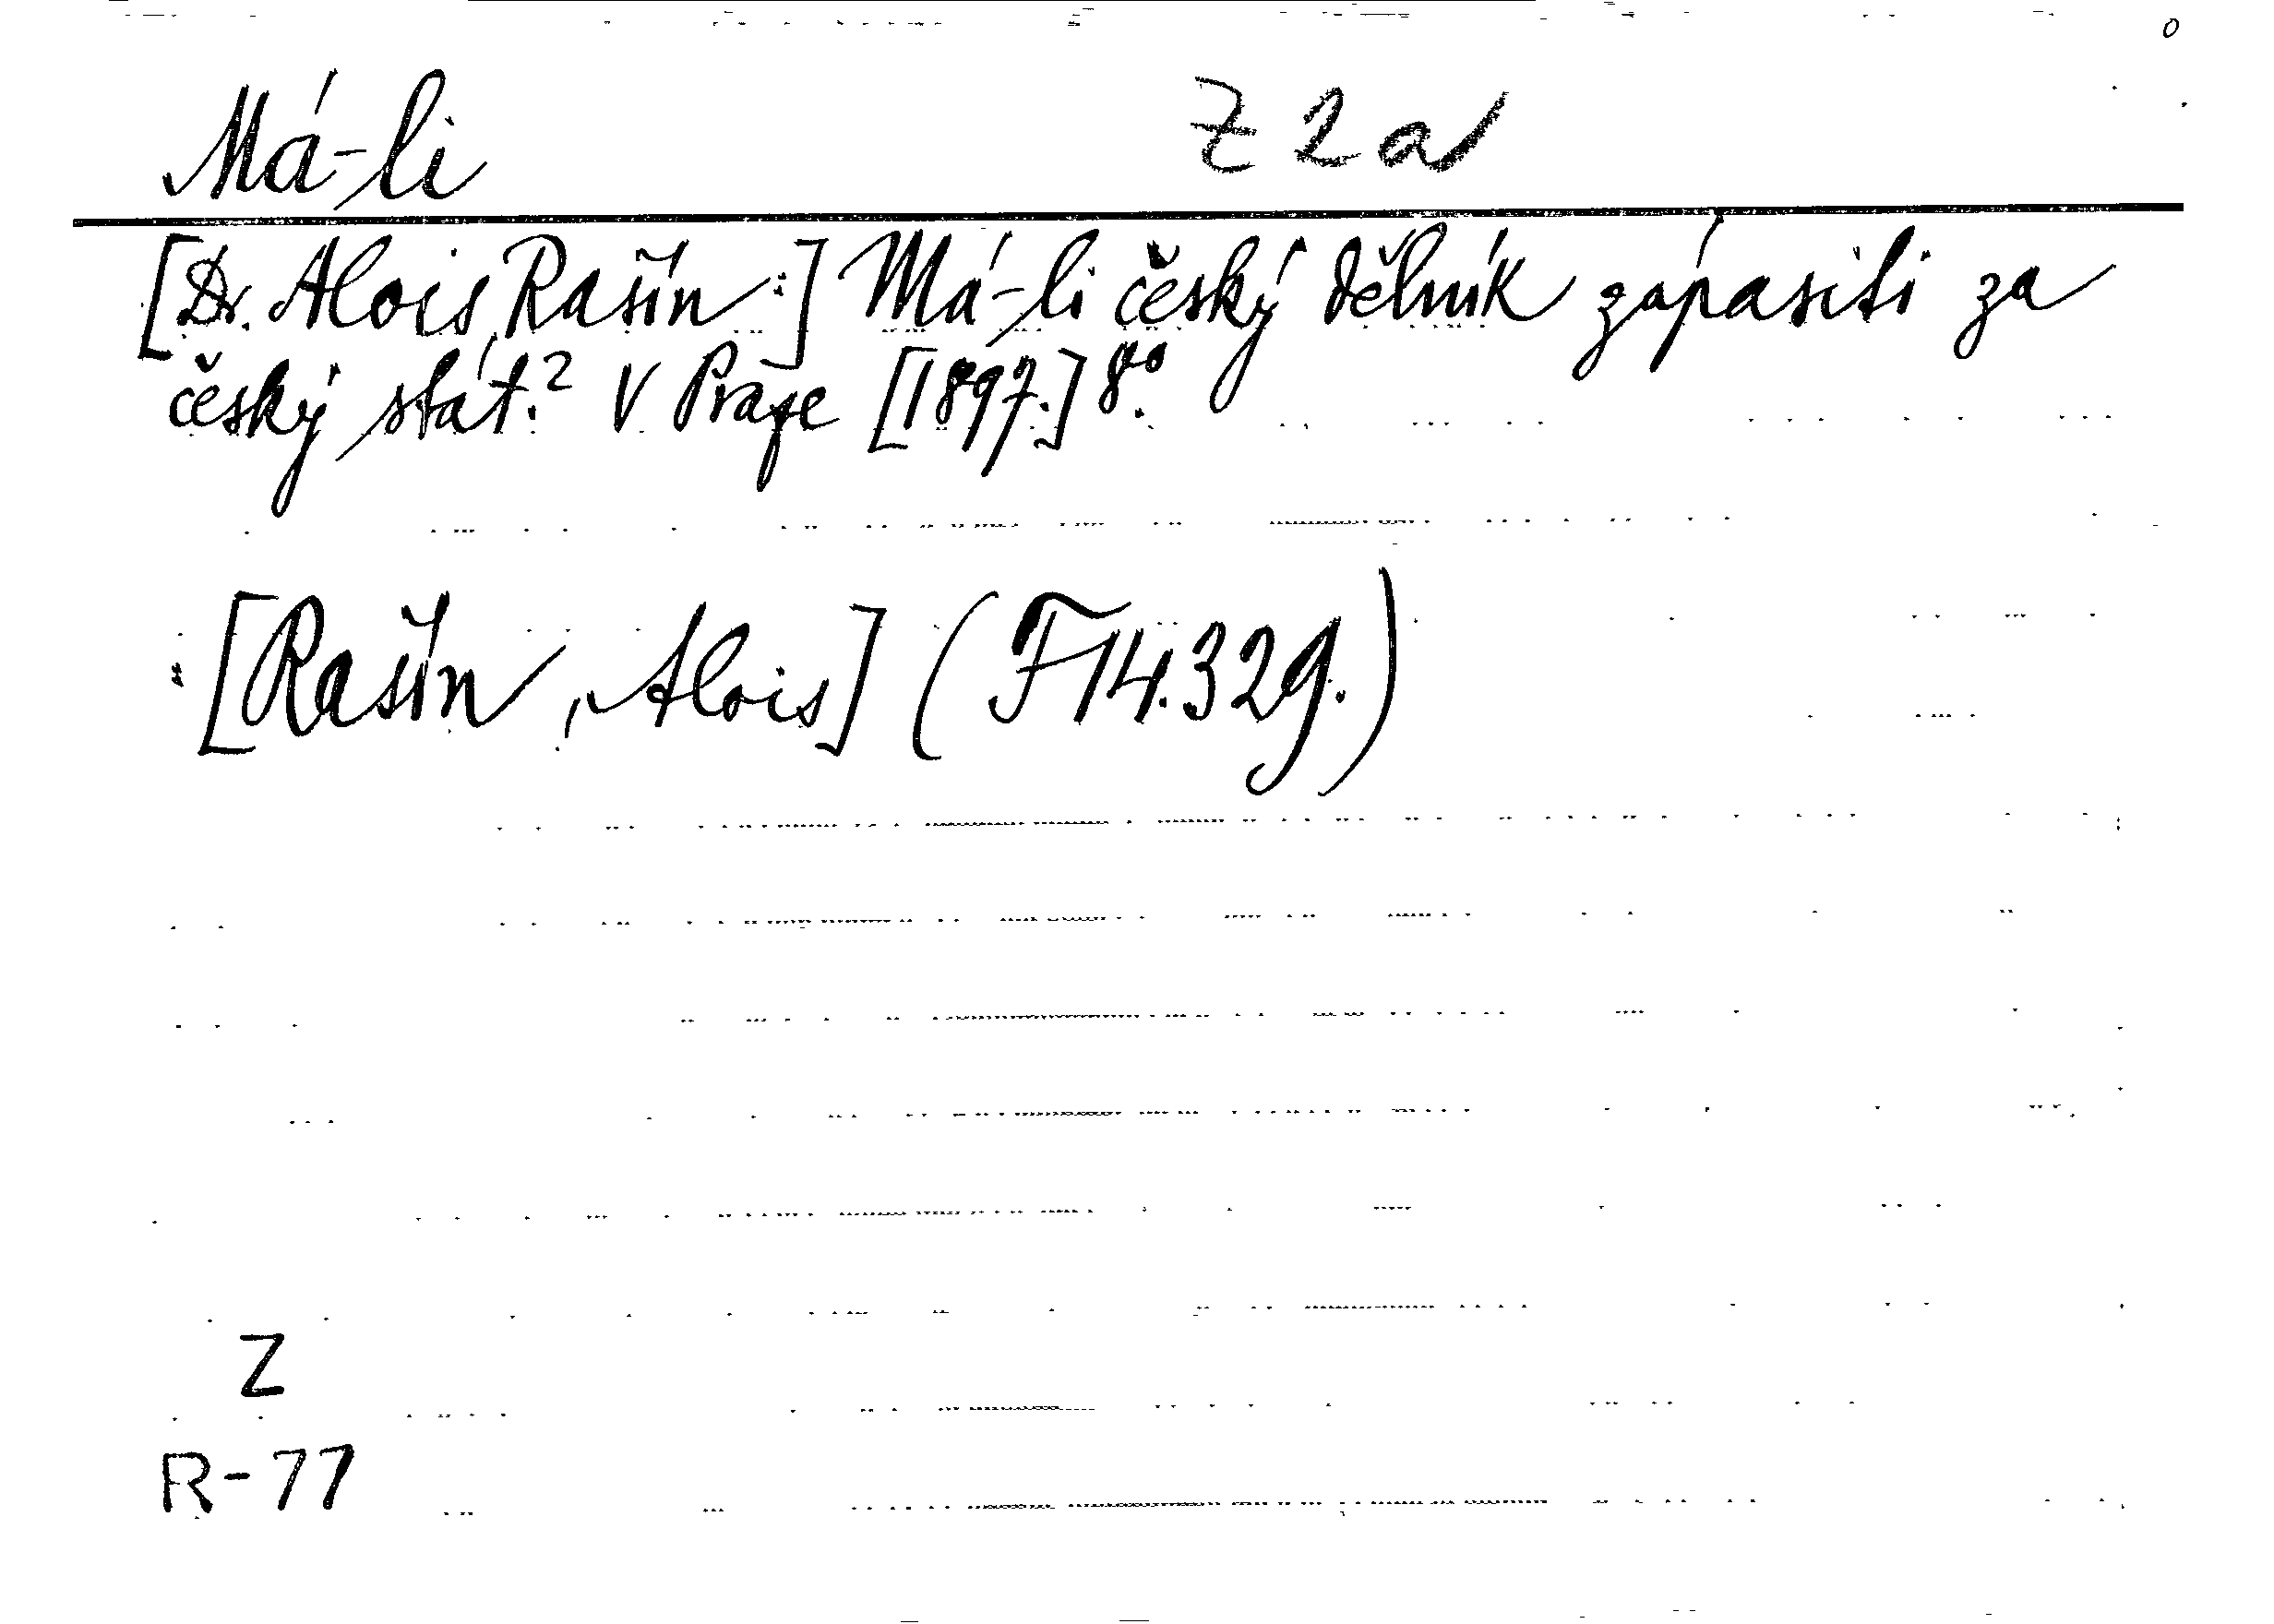 Má-li Z 2 a
[Dr. Alois Rašín:] Má-li český dělník zápasiti za
český stát? V Praze [1897.] 8º.
[Rašín, Alois] (F 14.329.)
Z
R-77